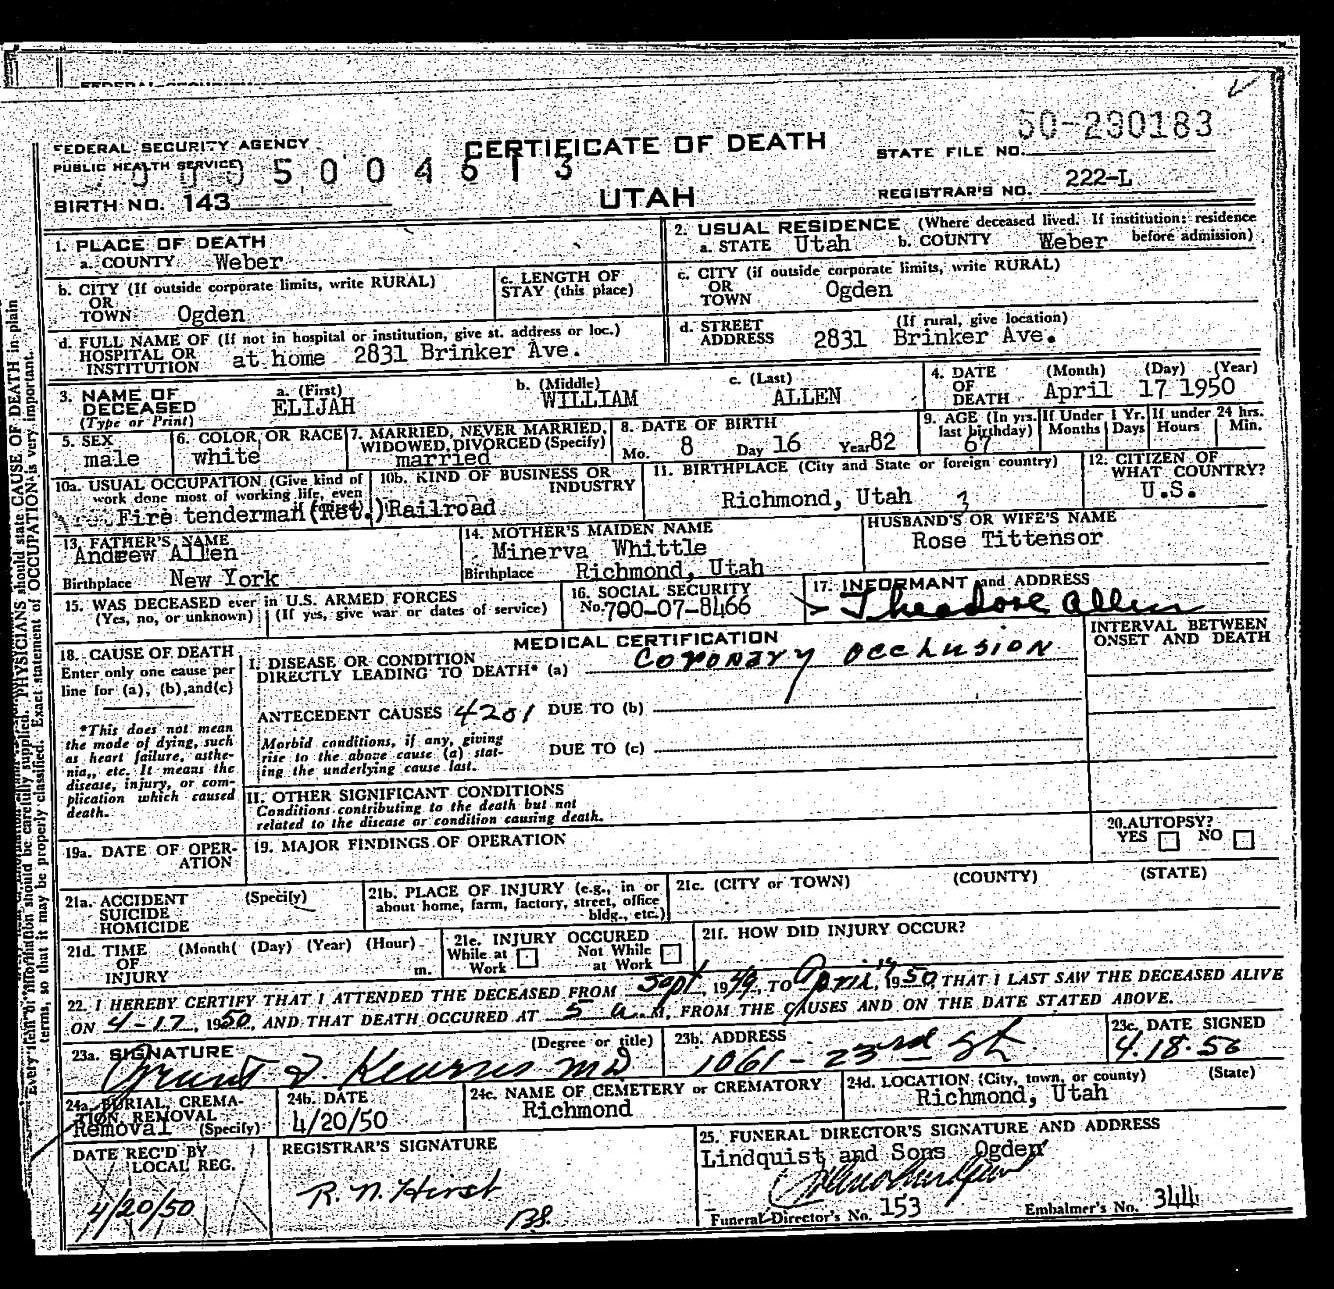 50-290183
FEDERAL SECURITY AGENCY
PUBLIC HEALTH SERVICE
CERTIFICATE OF DEATH
STATE FILE NO.
5004613
BIRTH NO. 143
UTAH
REGISTRAR'S NO. 222-L
1. PLACE OF DEATH
a. COUNTY Weber
2. USUAL RESIDENCE (Where deceased lived. If institution: residence before admission)
a. STATE Utah b. COUNTY Weber
b. CITY (If outside corporate limits, write RURAL)
OR
TOWN Ogden
c. LENGTH OF
STAY (this place)
c. CITY (if outside corporate limits, write RURAL)
OR
TOWN Ogden
d. FULL NAME OF (If not in hospital or institution, give st. address or loc.)
HOSPITAL OR
INSTITUTION at home 2831 Brinker Ave.
d. STREET (If rural, give location)
ADDRESS 2831 Brinker Ave.
3. NAME OF
DECEASED
(Type or Print)
a. (First)
ELIJAH
b. (Middle)
WILLIAM
c. (Last)
ALLEN
4. DATE
OF
DEATH
(Month) (Day) (Year)
April 17 1950
5. SEX
male
6. COLOR OR RACE
white
7. MARRIED, NEVER MARRIED,
WIDOWED, DIVORCED (Specify)
married
8. DATE OF BIRTH
Mo. 8 Day 16 Year 82
9. AGE (In yrs. last birthday)
67
If Under 1 Yr.
Months Days
If under 24 hrs.
Hours Min.
10a. USUAL OCCUPATION (Give kind of
work done most of working life, even
Fire tenderman (Ret.)
10b. KIND OF BUSINESS OR
INDUSTRY
Railroad
11. BIRTHPLACE (City and State or foreign country)
Richmond, Utah
12. CITIZEN OF
WHAT COUNTRY?
U.S.
13. FATHER'S NAME
Andrew Allen
Birthplace New York
14. MOTHER'S MAIDEN NAME
Minerva Whittle
Birthplace Richmond, Utah
HUSBAND'S OR WIFE'S NAME
Rose Tittensor
15. WAS DECEASED ever in U.S. ARMED FORCES
(Yes, no, or unknown) (If yes, give war or dates of service)
16. SOCIAL SECURITY
No. 700-07-8466
17. INFORMANT and ADDRESS
Theodore Allen
18. CAUSE OF DEATH
Enter only one cause per
line for (a), (b), and (c)
*This does not mean
the mode of dying, such
as heart failure, asthe-
nia,, etc. It means the
disease, injury, or com-
plication which caused
death.
MEDICAL CERTIFICATION
I. DISEASE OR CONDITION
DIRECTLY LEADING TO DEATH* (a) Coronary occlusion
INTERVAL BETWEEN
ONSET AND DEATH
ANTECEDENT CAUSES 4201 DUE TO (b)
Morbid conditions, if any, giving
rise to the above cause (a) stat-
ing the underlying cause last.
DUE TO (c)
II. OTHER SIGNIFICANT CONDITIONS
Conditions contributing to the death but not
related to the disease or condition causing death.
19a. DATE OF OPER-
ATION
19. MAJOR FINDINGS OF OPERATION
20. AUTOPSY?
YES NO
21a. ACCIDENT (Specify)
SUICIDE
HOMICIDE
21b. PLACE OF INJURY (e.g., in or
about home, farm, factory, street, office
bldg., etc.)
21c. (CITY or TOWN) (COUNTY) (STATE)
21d. TIME (Month( (Day) (Year) (Hour)
OF
INJURY m.
21e. INJURY OCCURED
While at Work Not While at Work
21f. HOW DID INJURY OCCUR?
22. I HEREBY CERTIFY THAT I ATTENDED THE DECEASED FROM Sept, 1949, TO April 17, 1950, THAT I LAST SAW THE DECEASED ALIVE
ON 4-17, 1950, AND THAT DEATH OCCURED AT 5 a.M, FROM THE CAUSES AND ON THE DATE STATED ABOVE.
23a. SIGNATURE (Degree or title)
Grant MD
23b. ADDRESS
1061-23rd St.
23c. DATE SIGNED
4.18.50
24a. BURIAL, CREMA-
TION REMOVAL
Removal (Specify)
24b. DATE
4/20/50
24c. NAME OF CEMETERY or CREMATORY
Richmond
24d. LOCATION (City, town, or county) (State)
Richmond, Utah
DATE REC'D BY
LOCAL REG.
4/20/50
REGISTRAR'S SIGNATURE
R. N. Hirst
25. FUNERAL DIRECTOR'S SIGNATURE AND ADDRESS
Lindquist and Sons Ogden
Funeral Director's No. 153 Embalmer's No. 344